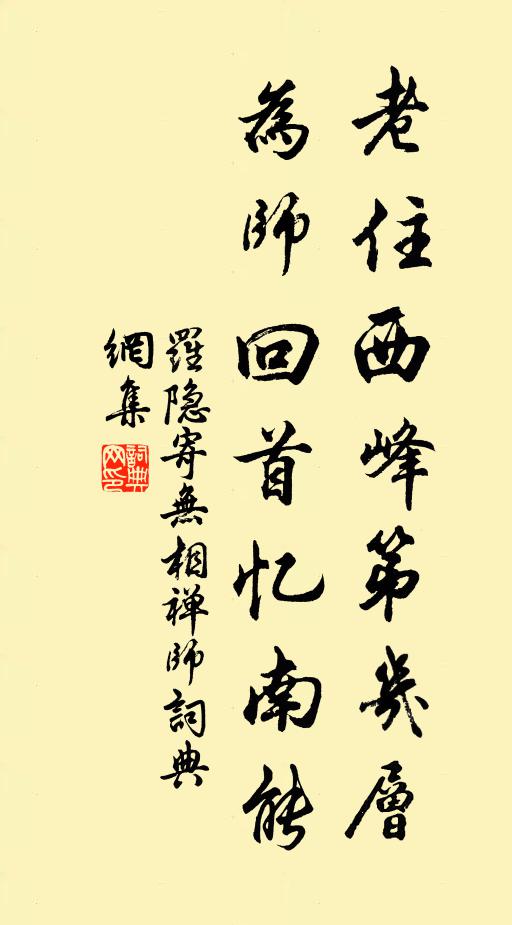 老住西峰第幾層
為師回首忆南能
羅隐寄無相禅师詞典
網集
詞典
网印